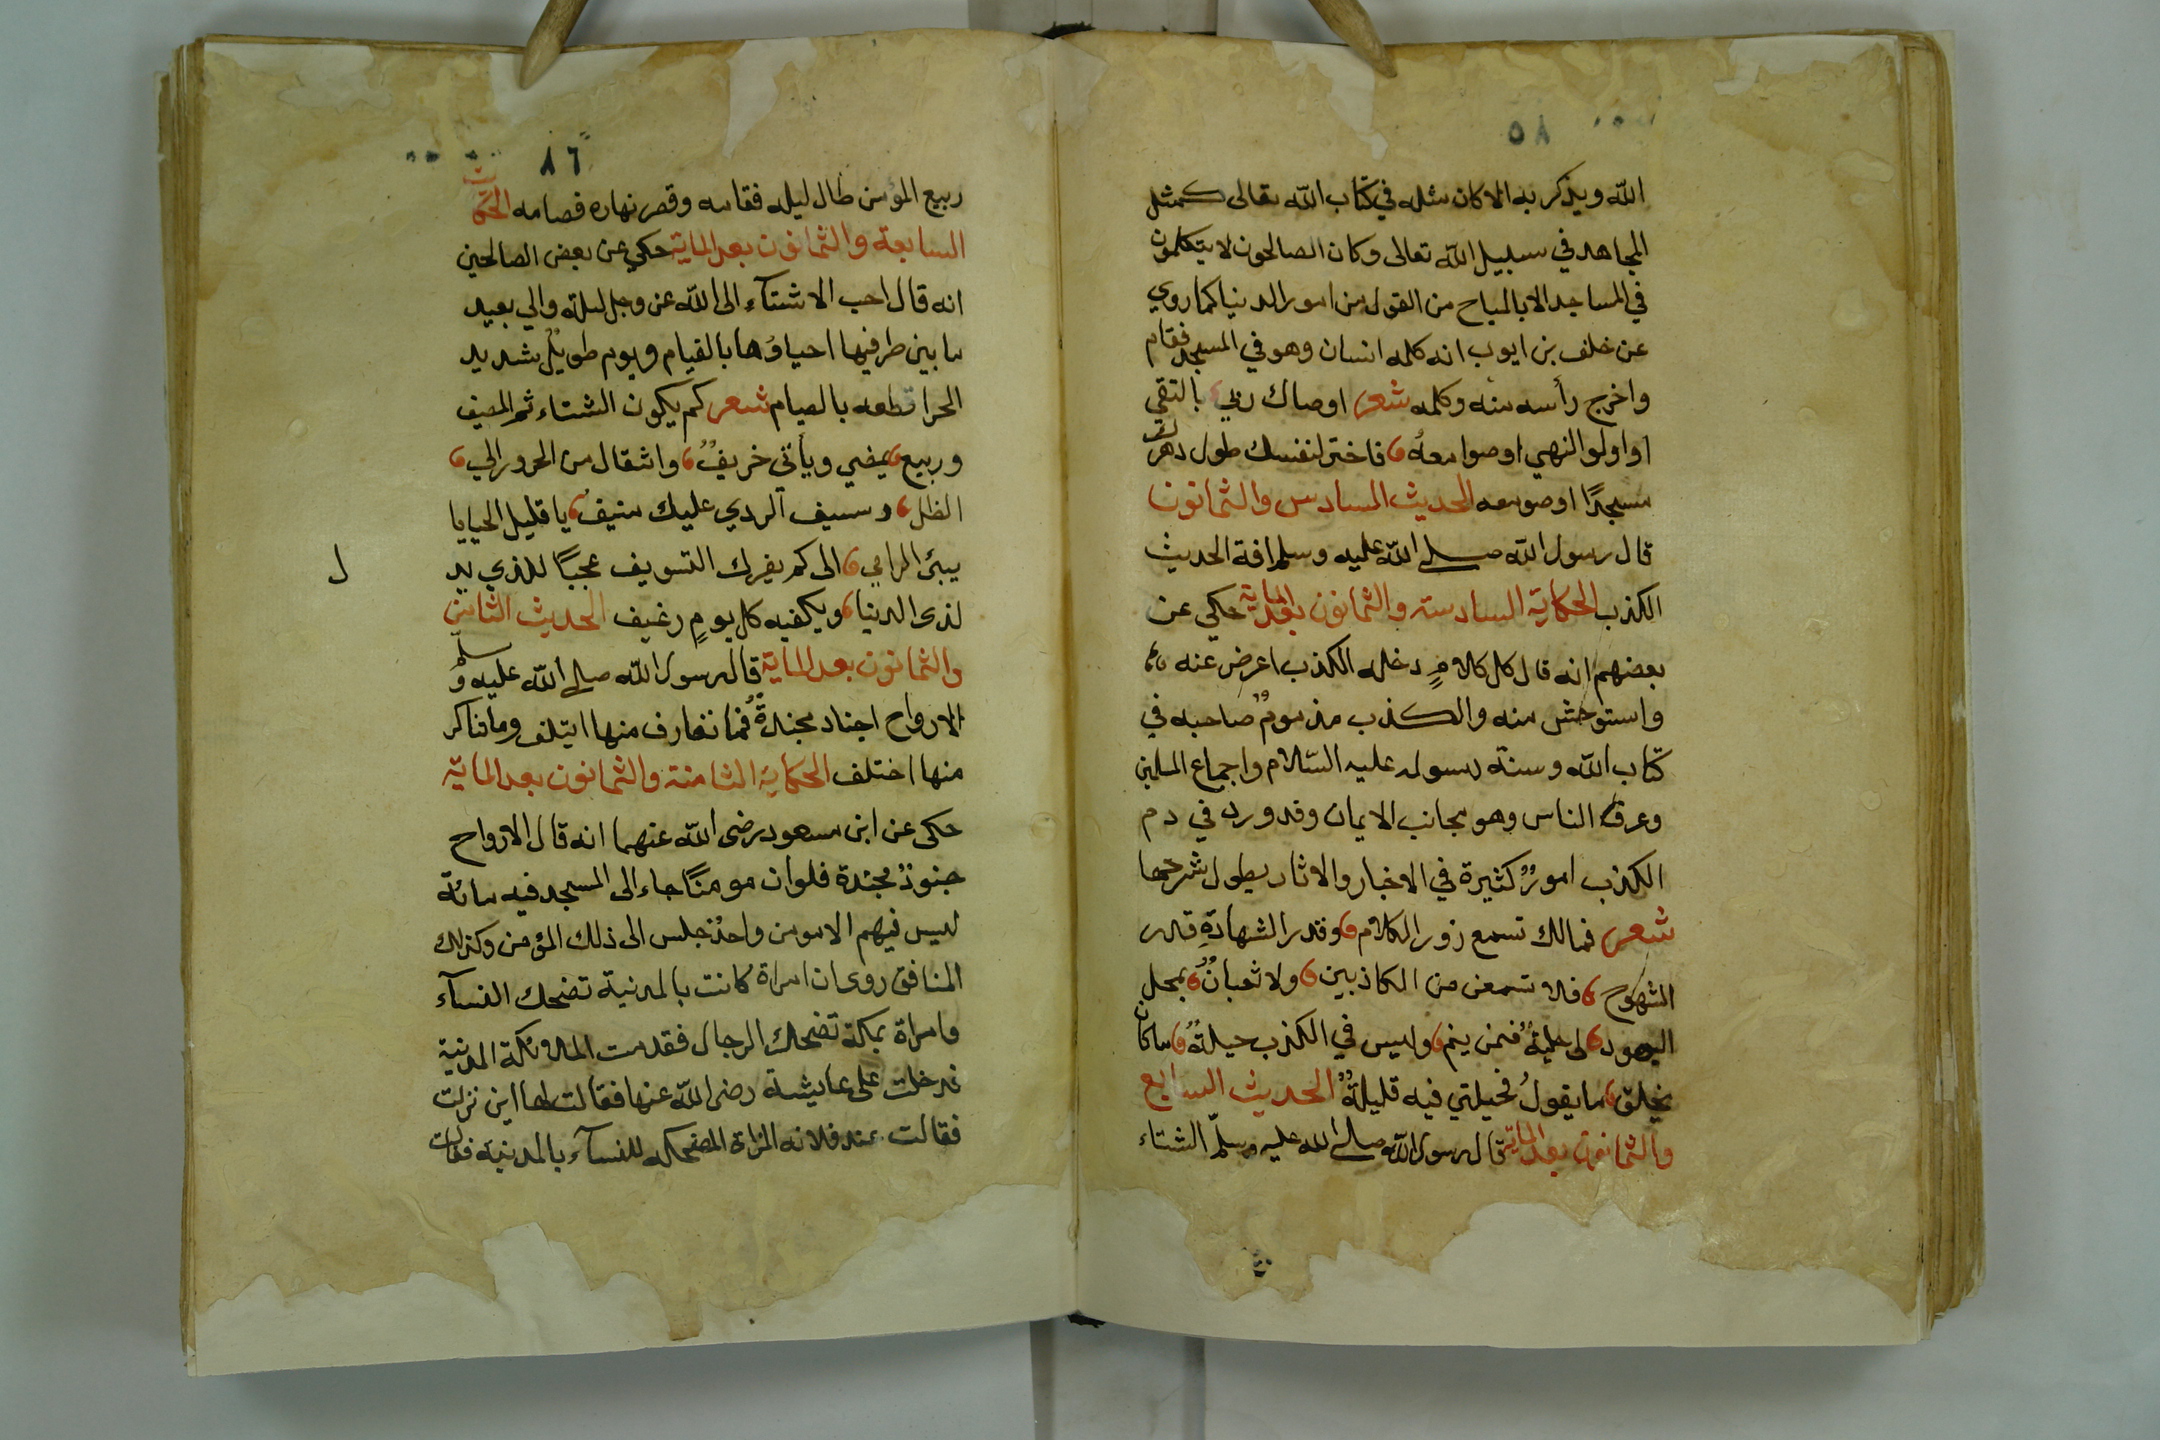 ٨٥
الله ويذكر به الا كان مثله في كتاب الله تعالى كمثل
المجاهد في سبيل الله تعالى وكان الصالحون لا يتكلمون
في المساجد الا بالمباح من القول من امور الدنيا كما روي
عن خلف بن ايوب انه كلمه انسان وهو في المسجد فقام
واخرج رأسه منه وكلمه شعر اوصاك ربي بالتقي
اواولوا النهي اوصوا معهُ فاختر لنفسك طول دهرك
مسجدًا او صومعه الحديث السادس والثمانون
قال رسول الله صلى الله عليه وسلم افة الحديث
الكذب الحكاية السادسة والثمانون بعد الماية حكي عن
بعضهم انه قال كل كلامٍ دخله الكذب اعرض عنه
واستوحش منه والكذب مذمومٌ صاحبه في
كتاب الله وسنة رسوله عليه السلام واجماع المسلمين
وعرف الناس وهو مجانب الايمان وقد ورد في ذم
الكذب امورٌ كثيرة في الاخبار والاثار يطول شرحها
شعر فمالك تسمع زور الكلام وقدر الشهادةِ قدر
الشهوح فلا تسمعن من الكاذبين ولا ثعبانٌ بمحل
اليهود لى حيلةٌ فمن ينم وليس في الكذب حيلةٌ من كان
يخلق ما يقولُ فحيلتي فيه قليلةٌ الحديث السابع
والثمانون بعد الماية قال رسول الله صلى الله عليه وسلم الشتاء
٨٦
ربيع المؤمن طال ليله فقامه وقصر نهاره فصامه الحكاية
السابعة والثمانون بعد الماية حكي عن بعض الصالحين
انه قال احب الاشتآء الى الله عز وجل ليلة والي بعيد
ما بين طرفيها احياؤها بالقيام ويوم طويلٌ شديد
الحر اقطعه بالصيام شعر كم يكون الشتاء ثم المصيف
وربيع يمضي ويأتي خريفٌ وانتقال من الحرور الي
الظل وسيف الردي عليك منيفٌ يا قليل الحيايا
الى كم يغرك التسويف عجبًا للذي يد
لذى الدنيا ويكفيه كل يومٍ رغيف الحديث الثامن
والثمانون بعد الماية قال رسول الله صلى الله عليه وسلم
الارواح اجناد مجندةٌ فما تعارف منها ايتلف وما تناكر
منها اختلف الحكاية الثامنة والثمانون بعد الماية
حكى عن ابن مسعود رضى الله عنهما انه قال الارواح
جنودٌ مجندة فلو ان مومنًا جاء الى المسجد فيه مائة
ليس فيهم الا مومن واحدٌ جلس الى ذلك المؤمن وكذلك
المنافق روى ان امراة كانت بالمدينة تضحك النسآء
وامراة بمكة تضحك الرجال فقدمت المكة المدينة
فدخلت على عايشة رضى الله عنها فقالت لها اين نزلت
فقالت عند فلانه المراة المضحكه للنسآء بالمدينة فقالت
ل